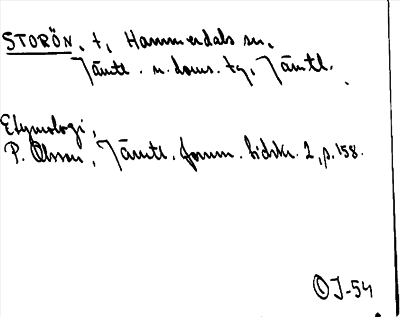 STORÖN, t, Hammerdals sn.
Jämtl. n. doms. tg, Jämtl.
Etymologi,
P. Olsson, Jämtl. fornm. tidskr. 2, p. 158.
OJ-54